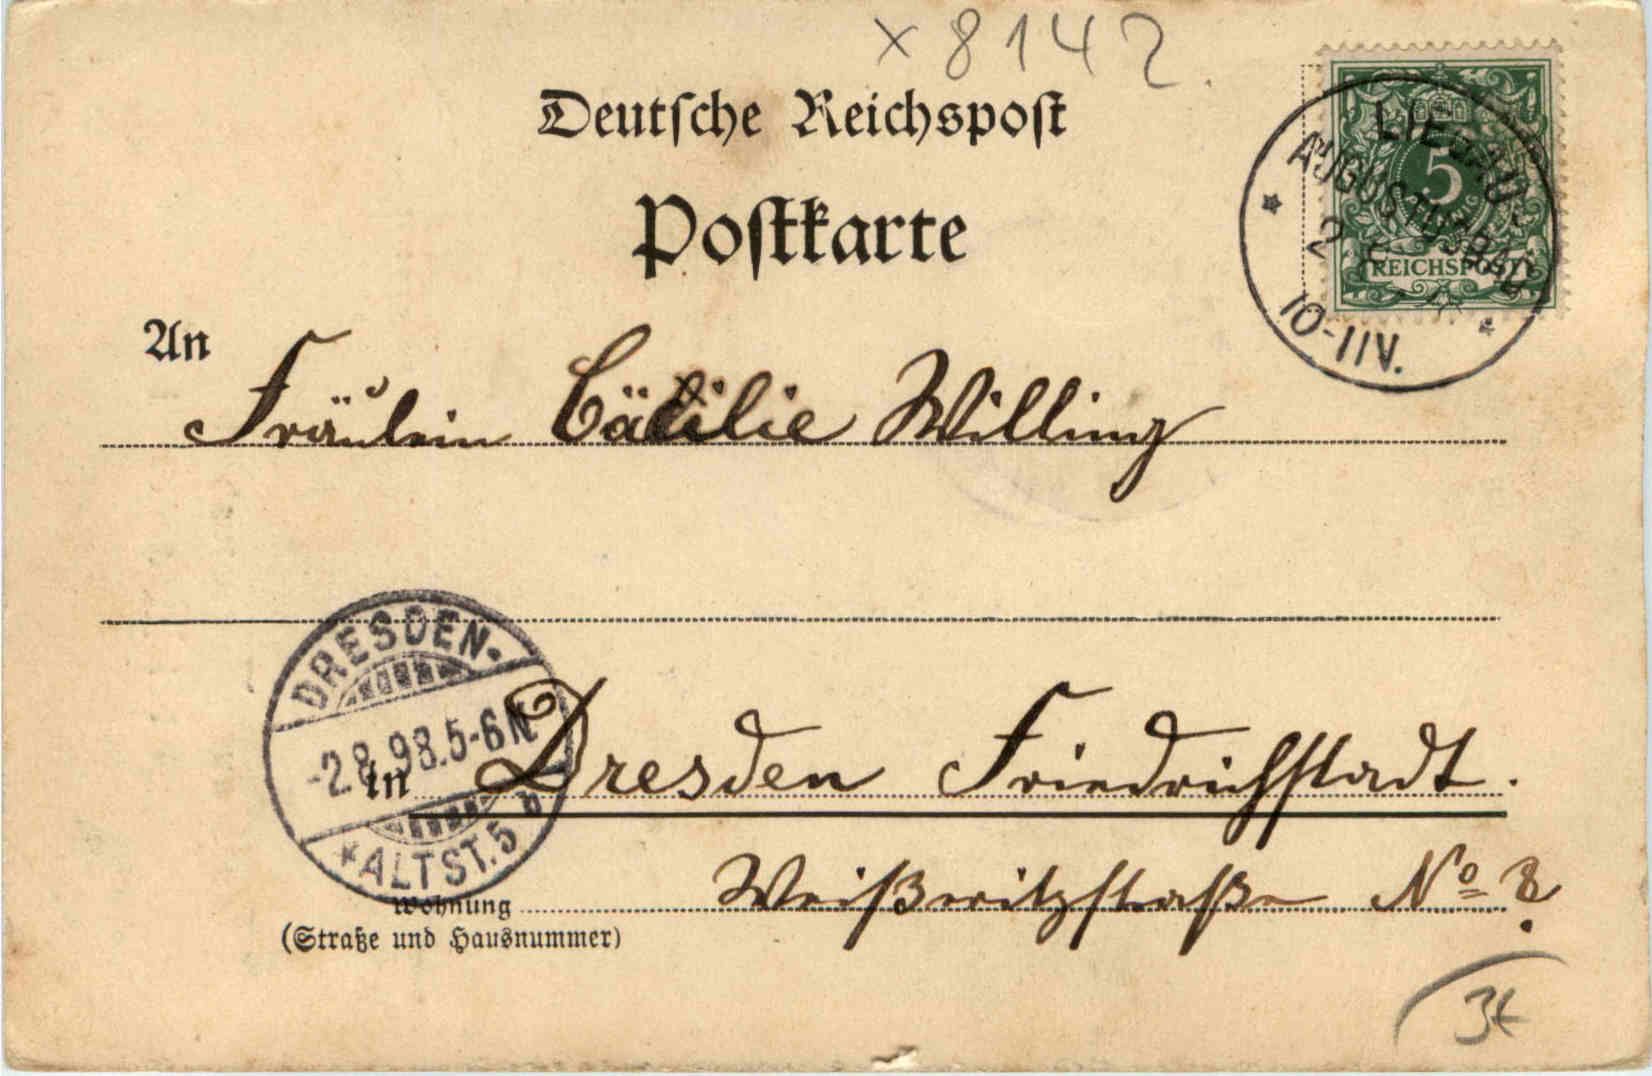 x 8142.
Deutsche Reichspost
Postkarte
5
REICHSPOST
LIEGAU-
AUGUSTUSBAD
2
10-11V.
An
Fräulein Cäcilie Willing
DRESDEN-
-2.8.98.5-6N
*ALTST.5 b
in Dresden Friedrichstadt.
Wohnung Weißeritzstraße No 8.
(Straße und Hausnummer)